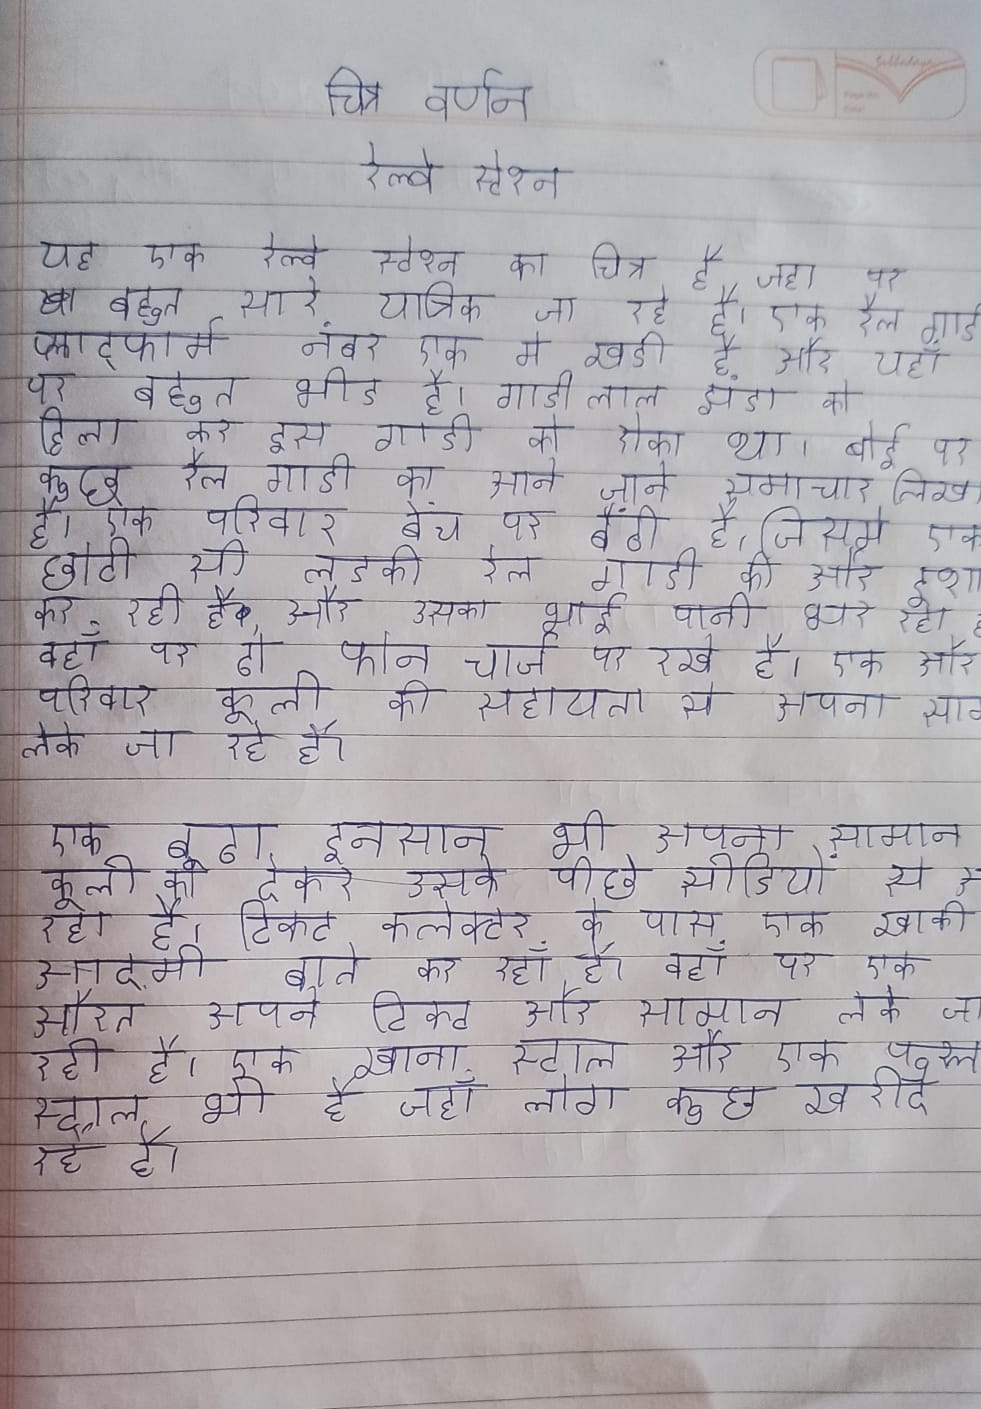 चित्र वर्णन
रेल्वे स्टेशन
यह एक रेल्वे स्टेशन का चित्र है, जहा पर
बहुत सारे यात्रिक जा रहे है। एक रैल गाडी
प्लाट्फार्म नंबर एक मे खडी है और यहाँ
पर बहुत भीड है। गाडी लाल झंडा को
हिला कर इस गाडी को रोका था। बोर्ड पर
कुछ रैल गाडी का आने जाने समाचार लिखा
है। एक परिवार बेंच पर बैठी है, जिसमे एक
छोटी सी लडकी रेल गाडी की और इशा
कर रही है, और उसका भाई पानी भर रहा है
वहाँ पर दो फोन चार्ज पर रखे है। एक और
परिवार कूली की सहायता से अपना
लेके जा रहे है।
एक बूढा इनसान भी अपना सामान
कूली को देकर उसके पीछे सीडियों से
रहा है। टिकट कलेक्टर के पास एक खाकी
आदमी बाते कर रहाँ है। वहाँ पर एक
औरत अपने टिकट और सामान लेके जा
रही है। एक खाना स्टाल और एक
स्टाल भी है जहाँ लोग कुछ खरीद
रहे है।